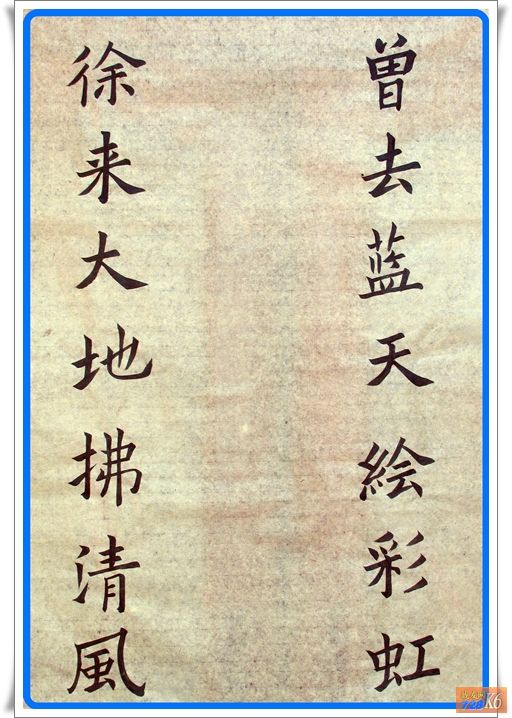 曾去蓝天絵彩虹
徐来大地拂清風
K6